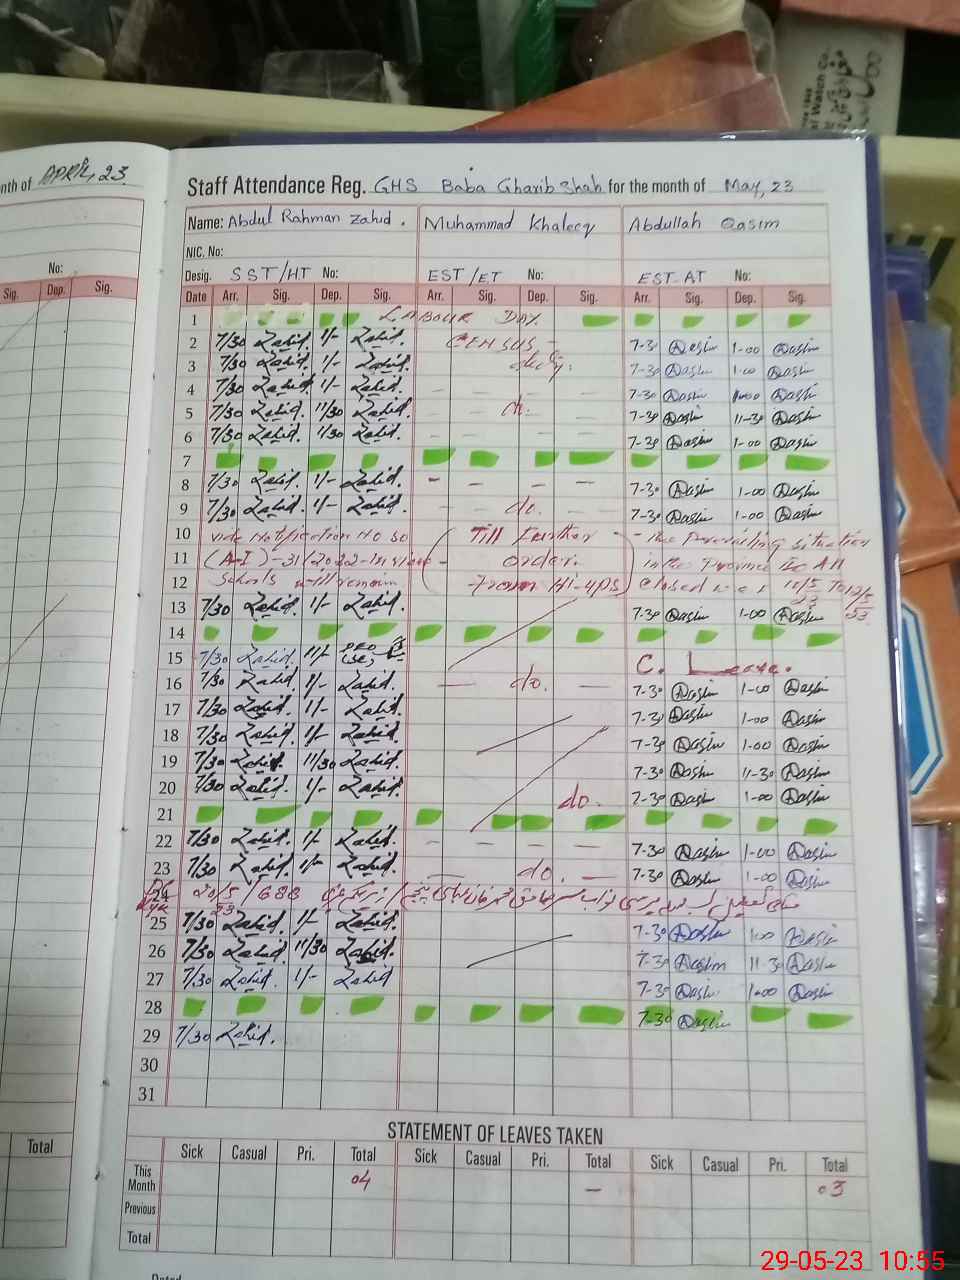 APRIL, 23
Staff Attendance Reg. GHS Baba Gharib Shah for the month of May, 23
Name: Abdul Rahman Zahid. Muhammad Khaleeq Abdullah Qasim
NIC. No:
Desig. SST/HT No: EST/ET No: EST-AT No:
Date Arr. Sig. Dep. Sig. Arr. Sig. Dep. Sig. Arr. Sig. Dep. Sig.
1 LABOUR DAY
2 7/30 Zahid. 1/- Zahid. CENSUS - 7-30 Qasim 1-00 Qasim
3 7/30 Zahid. 1/- Zahid. 7-30 Qasim 1-00 Qasim
4 7/30 Zahid. 1/- Zahid. - - - - 7-30 Qasim 1-00 Qasim
5 7/30 Zahid. 11/30 Zahid. do. 7-30 Qasim 11-30 Qasim
6 7/30 Zahid. 11/30 Zahid. - - - - 7-30 Qasim 1-00 Qasim
7
8 7/30 Zahid. 1/- Zahid. - - - - 7-30 Qasim 1-00 Qasim
9 7/30 Zahid. 1/- Zahid. - - do. - 7-30 Qasim 1-00 Qasim
10 vide Notification No SO Till Further - the Prevailing situation
11 (A-I)-31/2022- order. in the Province
12 Schools will remain From Hi-ups) closed 10/5 To 12/5
13 7/30 Zahid. 1/- Zahid. 7-30 Qasim 1-00 Qasim
14
15 7/30 Zahid. C. Leave.
16 7/30 Zahid. 1/- Zahid. — do. — 7-30 Qasim 1-00 Qasim
17 7/30 Zahid. 1/- Zahid. 7-30 Qasim 1-00 Qasim
18 7/30 Zahid. 1/- Zahid. 7-30 Qasim 1-00 Qasim
19 7/30 Zahid. 11/30 Zahid. 7-30 Qasim 11-30 Qasim
20 7/30 Zahid. 1/- Zahid. do. 7-30 Qasim 1-00 Qasim
21
22 7/30 Zahid. 1/- Zahid. - - - - 7-30 Qasim 1-00 Qasim
23 7/30 Zahid. 1/- Zahid. — do. — 7-30 Qasim 1-00 Qasim
24
25 7/30 Zahid. 1/- Zahid. 7-30 Qasim 1-00 Qasim
26 7/30 Zahid. 11/30 Zahid. 7-30 Qasim 11-30 Qasim
27 7/30 Zahid. 1/- Zahid 7-30 Qasim 1-00 Qasim
28 7-30 Qasim
29 7/30 Zahid.
30
31
STATEMENT OF LEAVES TAKEN
Sick Casual Pri. Total Sick Casual Pri. Total Sick Casual Pri. Total
This Month 04 — 03
Previous
Total
No:
Sig. Dep. Sig.
Total
29-05-23 10:55